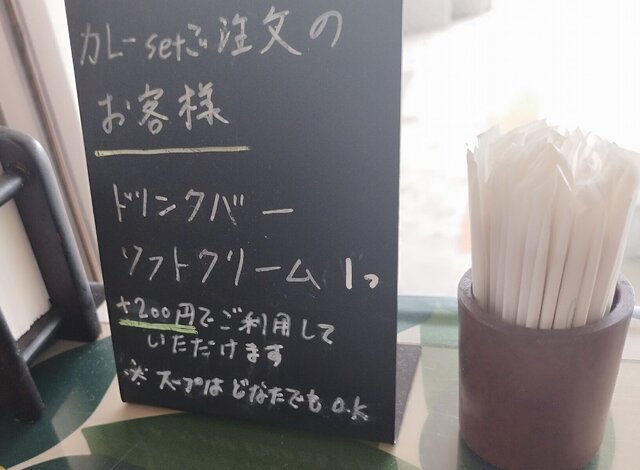 カレーsetご注文の
お客様
ドリンクバー
ソフトクリーム 1つ
+200円でご利用して
いただけます
※ スープはどなたでもO.K